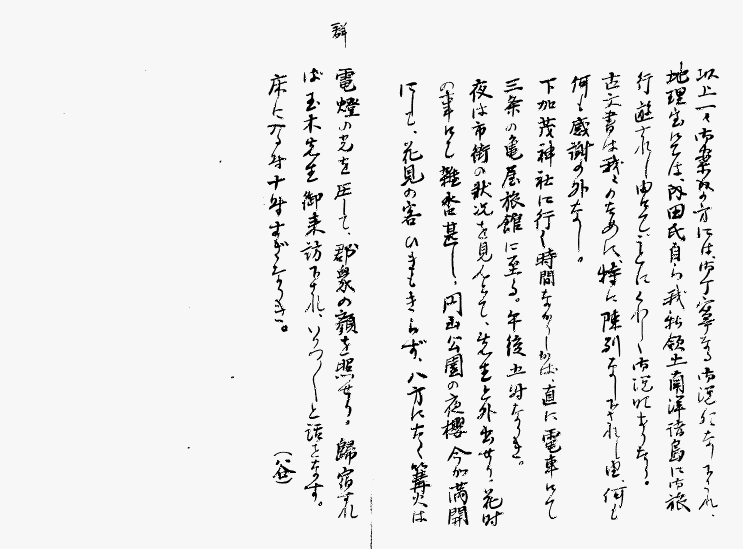 以上一々御案内の方には御丁寧なる御説明なし下され、
地理室にては、内田氏自ら我新領土南洋諸島に御旅
行遊されし由にてことにくわしく御説明ありたり。
古文書は我々のために、特に陳列なし下されし由、何も
何も感謝の外なし。
下加茂神社に行く時間なかりしかば、直に電車にて
三条の亀屋旅館に至る。午後五時なりき。
夜は市街の状況を見んとて、先生と外出せり。花時
の事にて雑沓甚し、円山公園の夜櫻今が満開
にして、花見の客ひきもきらず、八方にたく篝火は
電燈の光を圧して、郡衆の顔を照せり。歸宿すれ
群
ば玉木先生御来訪下され、いろ〳〵と話をなす。
床に入る時十時すぎなりき。